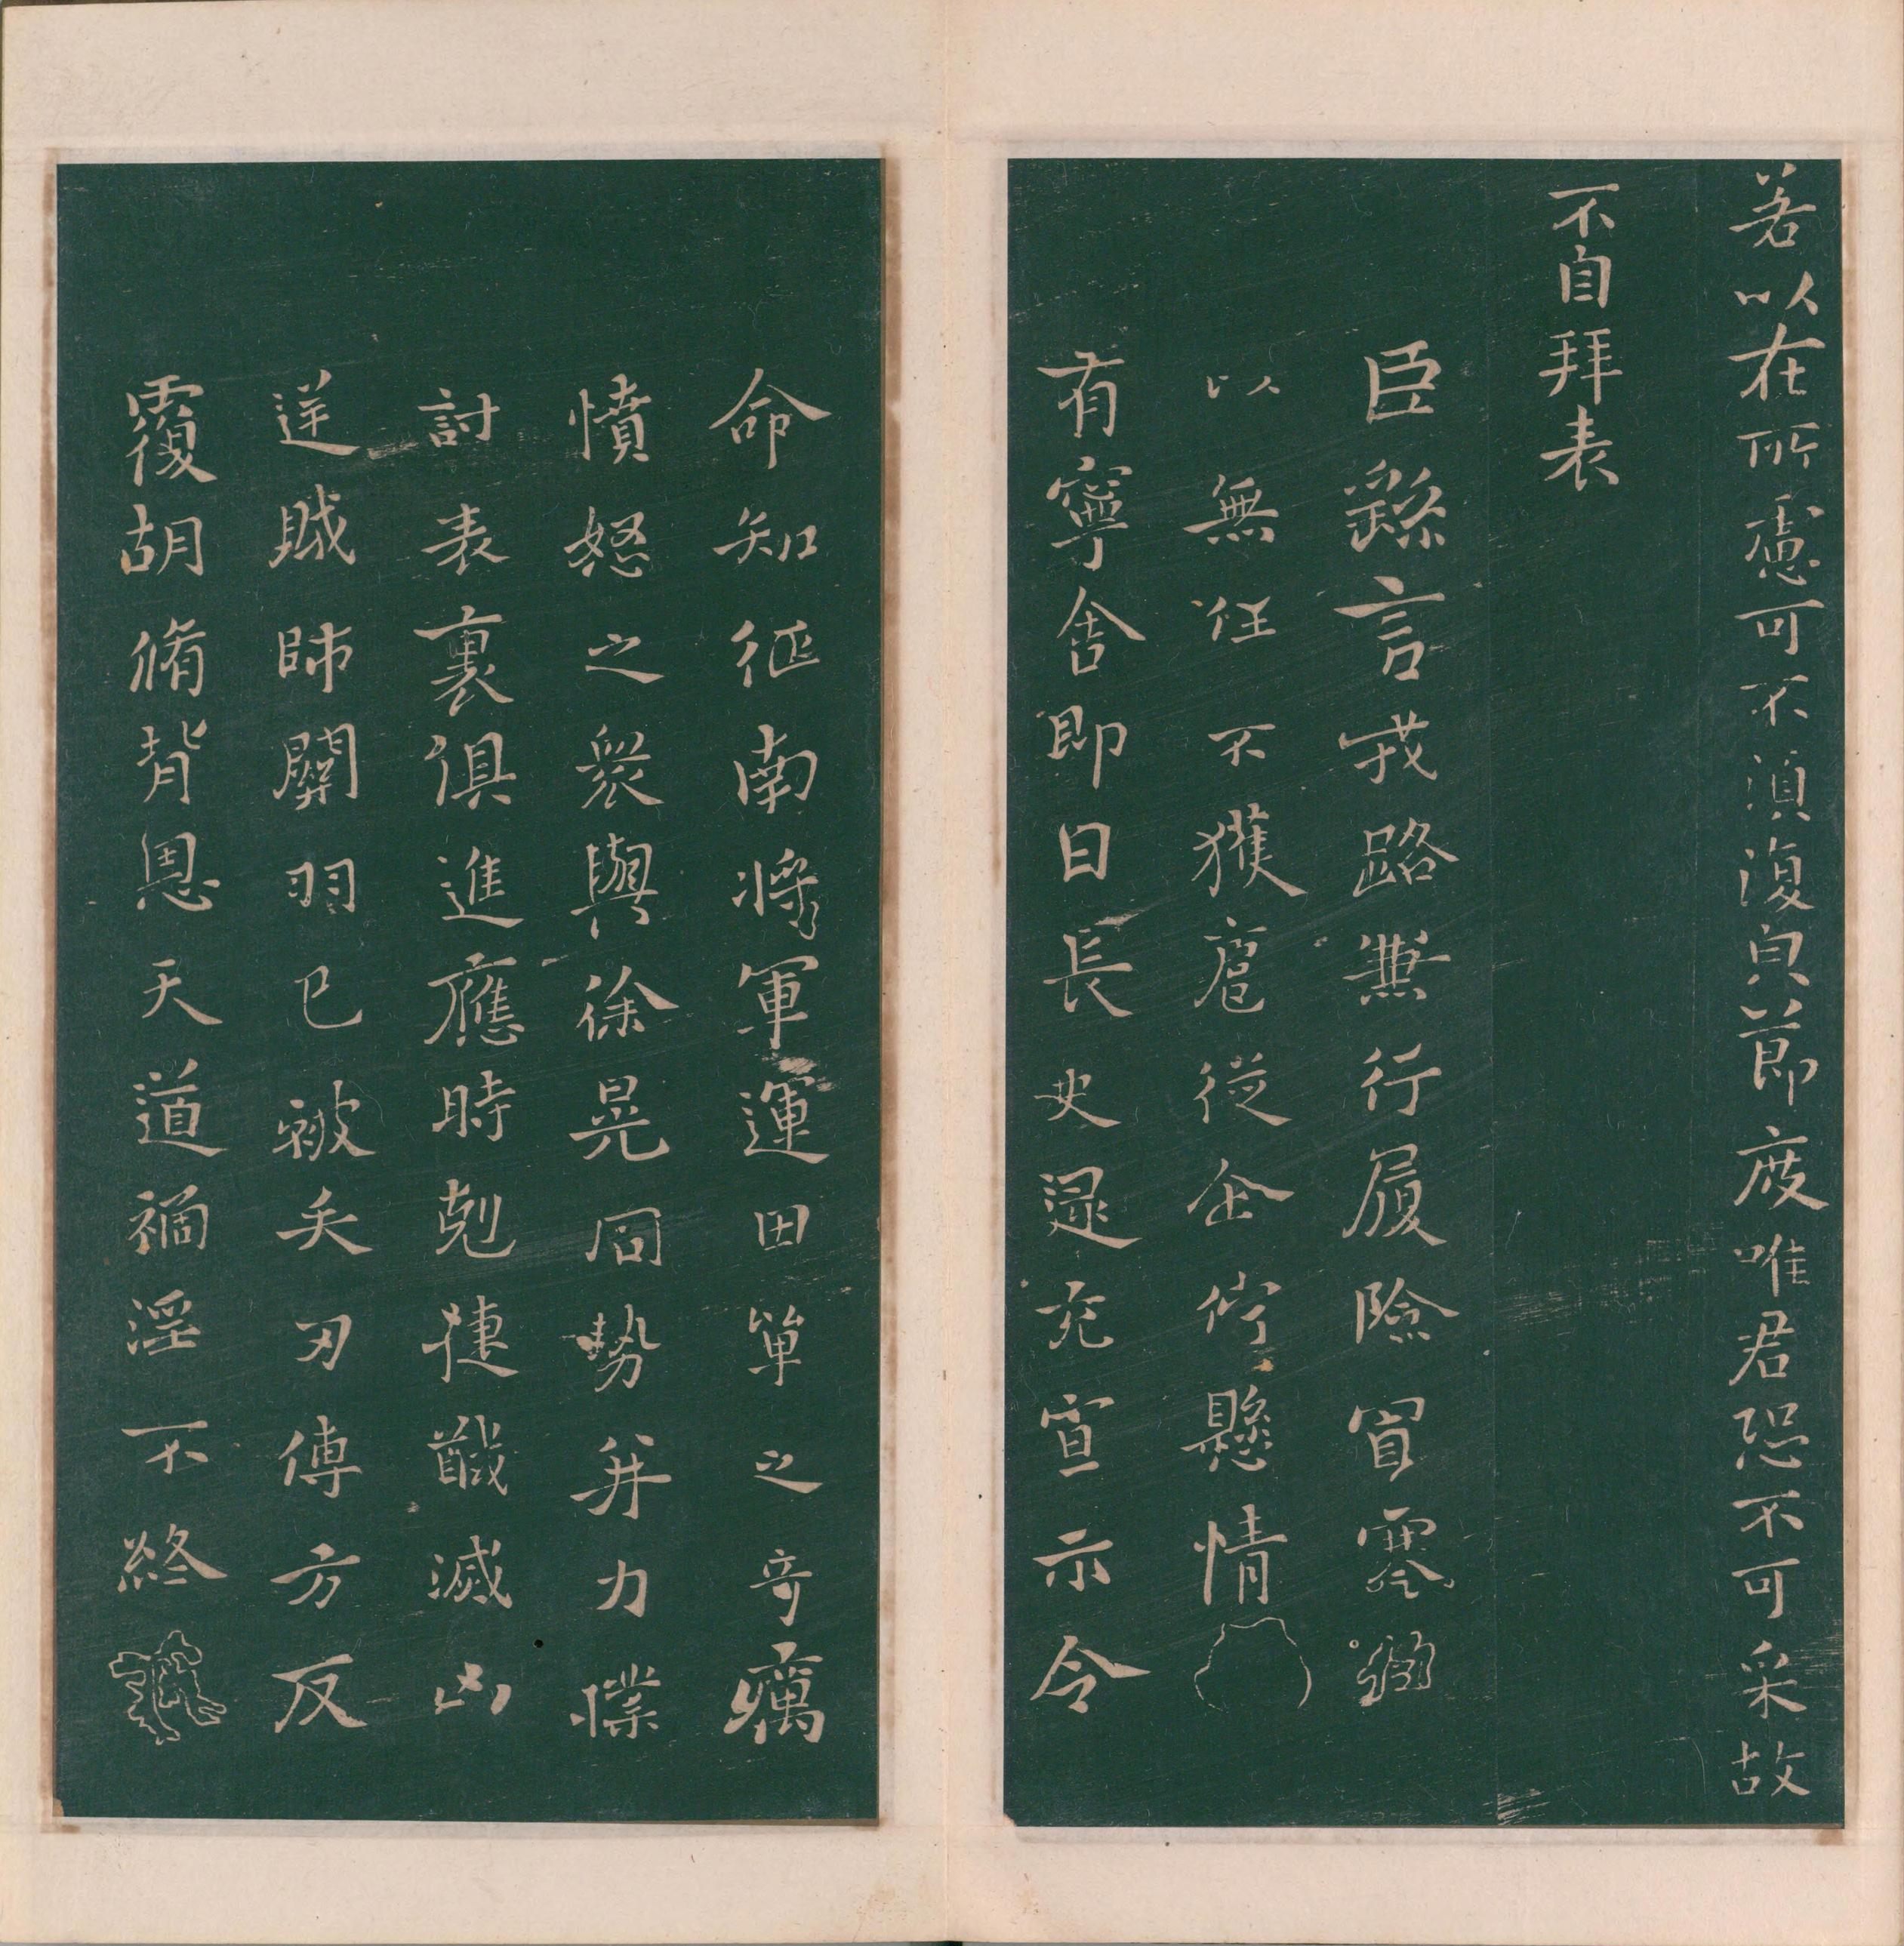 若以在所慮可不須復白節度唯君恐不可采故
不自拜表
臣繇言戎路兼行履險冒寒
以無任不獲扈從企佇懸情
有寧舍即日長史逯充宣示令
命知征南將軍運田單之奇厲
憤怒之衆與徐晃同勢并力㩧
討表裏俱進應時剋捷馘滅凶
逆賊帥關羽已被矢刃傅方反
覆胡脩背恩天道禍淫不終